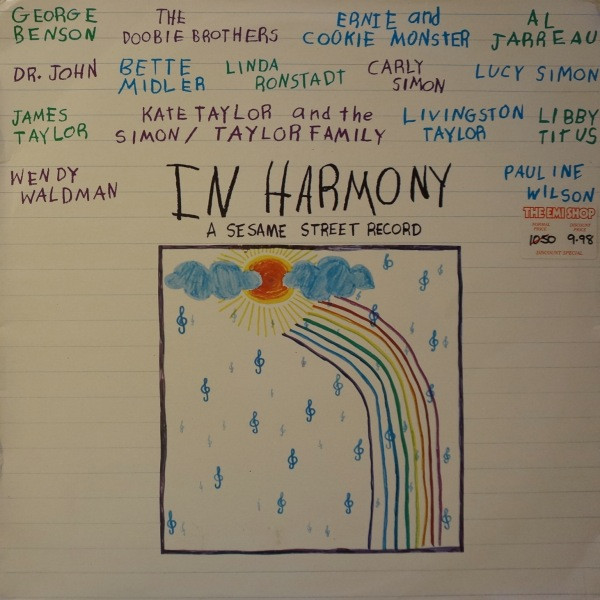 GEORGE BENSON
THE DOOBIE BROTHERS
ERNIE and COOKIE MONSTER
AL JARREAU
DR. JOHN
BETTE MIDLER
LINDA RONSTADT
CARLY SIMON
LUCY SIMON
JAMES TAYLOR
KATE TAYLOR and the SIMON / TAYLOR FAMILY
LIVINGSTON TAYLOR
LIBBY TITUS
WENDY WALDMAN
PAULINE WILSON
IN HARMONY
A SESAME STREET RECORD
THE EMI SHOP
NORMAL PRICE
DISCOUNT PRICE
10.50
9.98
DISCOUNT SPECIAL